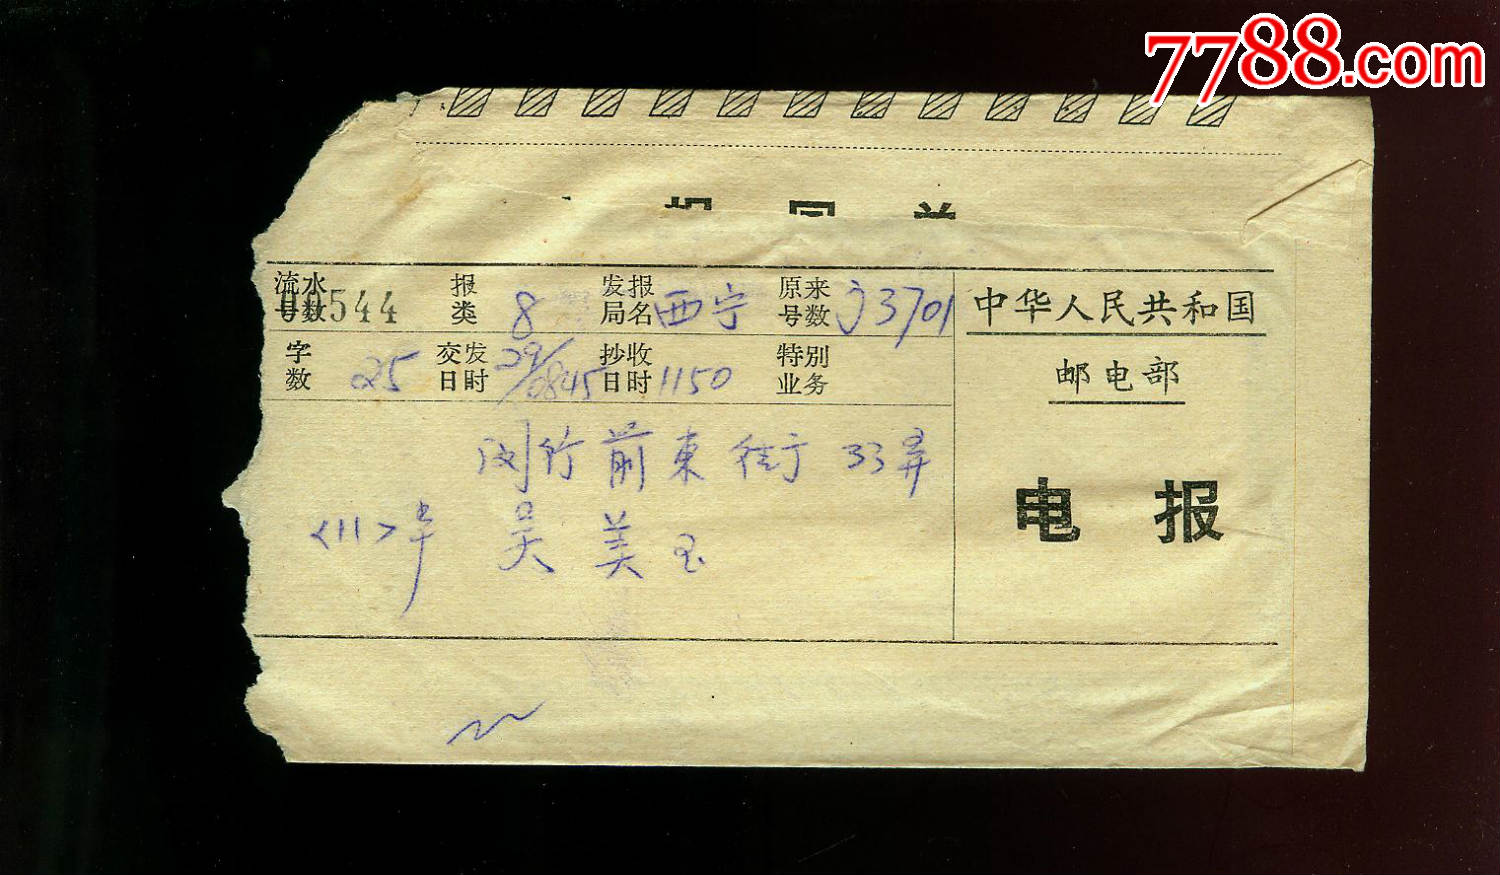 7788.com
流水号数 00544 报类 8 发报局名 西宁 原来号数 J3701
字数 25 交发日时 29/0845 抄收日时 1150 特别业务
竹前東街 33弄
<11> 吴美玉
中华人民共和国
邮电部
电报